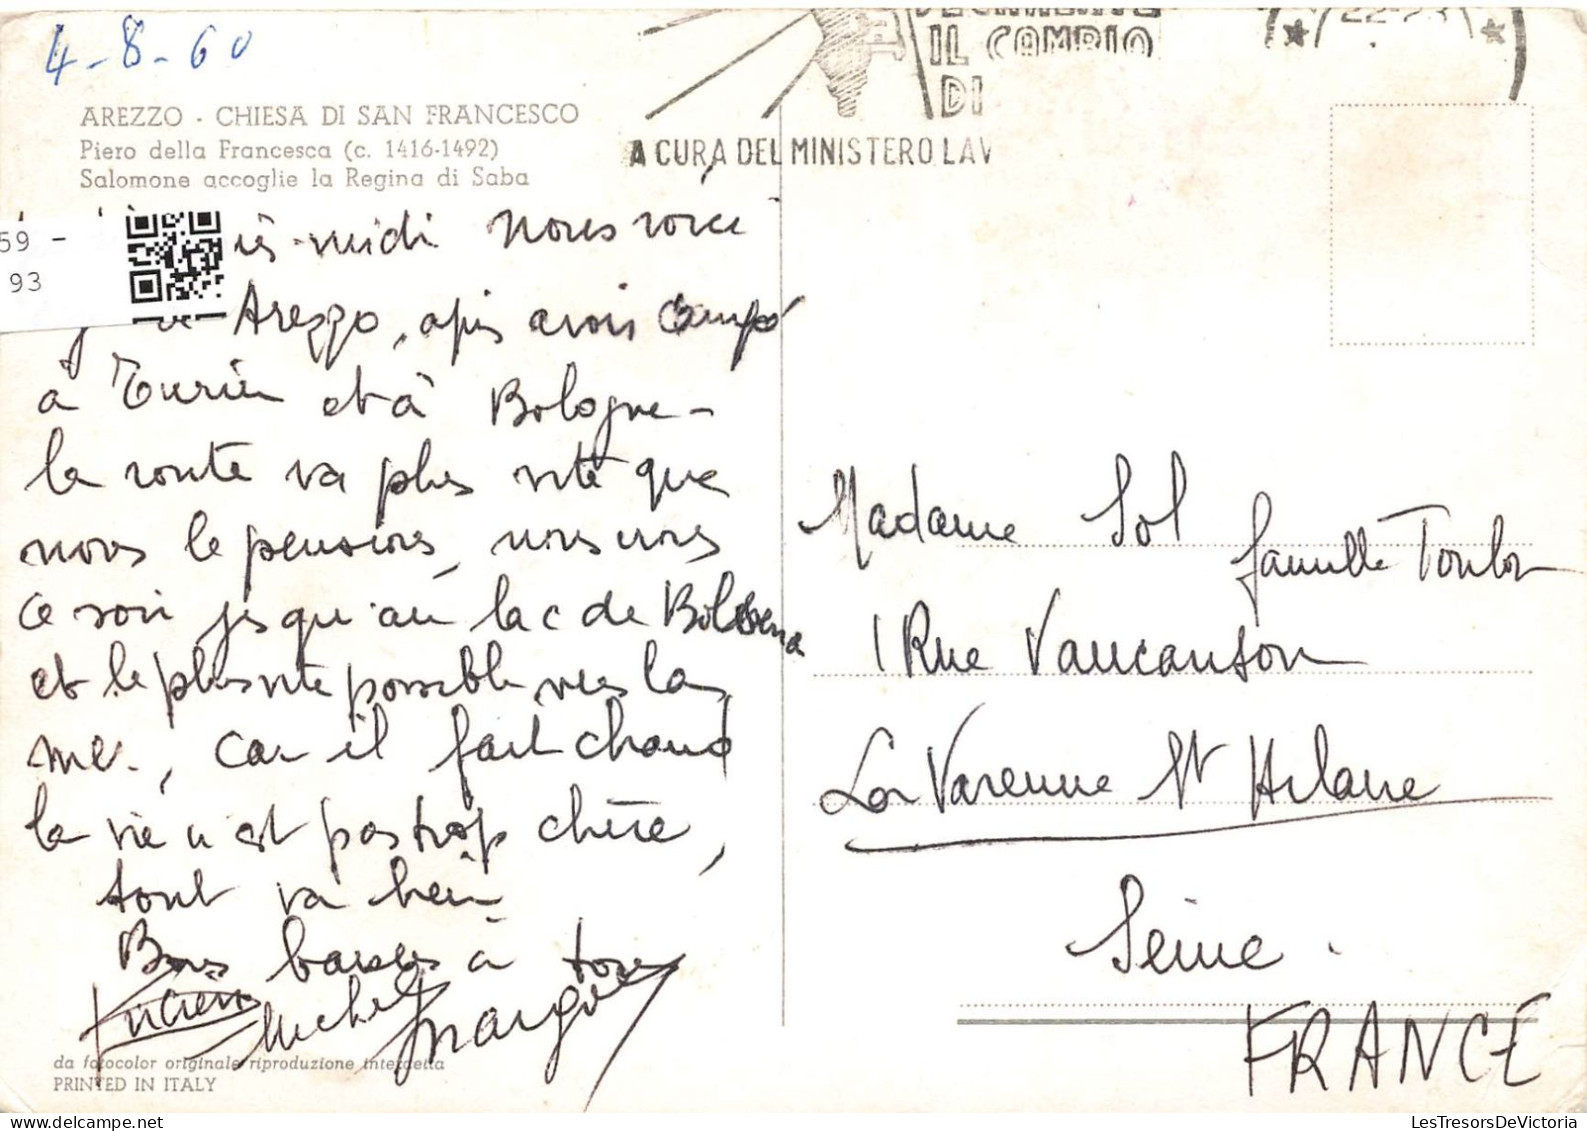 4-8-60
AREZZO - CHIESA DI SAN FRANCESCO
Piero della Francesca (c. 1416-1492)
Salomone accoglie la Regina di Saba
IL CAMBIO
DI
A CURA DEL MINISTERO LAV
22-23
59 -
93
midi nous voici
Arezzo, après avoir campé
à Turin et à Bologne -
la route va plus vite que
nous le pensions, nous irons
ce soir jusqu'au lac de Bolsena
et le plus vite possible vers la
mer, car il fait chaud
la vie n'est pas trop chère,
tout va bien
Bons baisers à tous
Lucien Michel Margot
da fotocolor originale riproduzione interdetta
PRINTED IN ITALY
Madame Sol famille Toulon
1 Rue Vaucanson
La Varenne St Hilaire
Seine.
FRANCE
LesTresorsDeVictoria